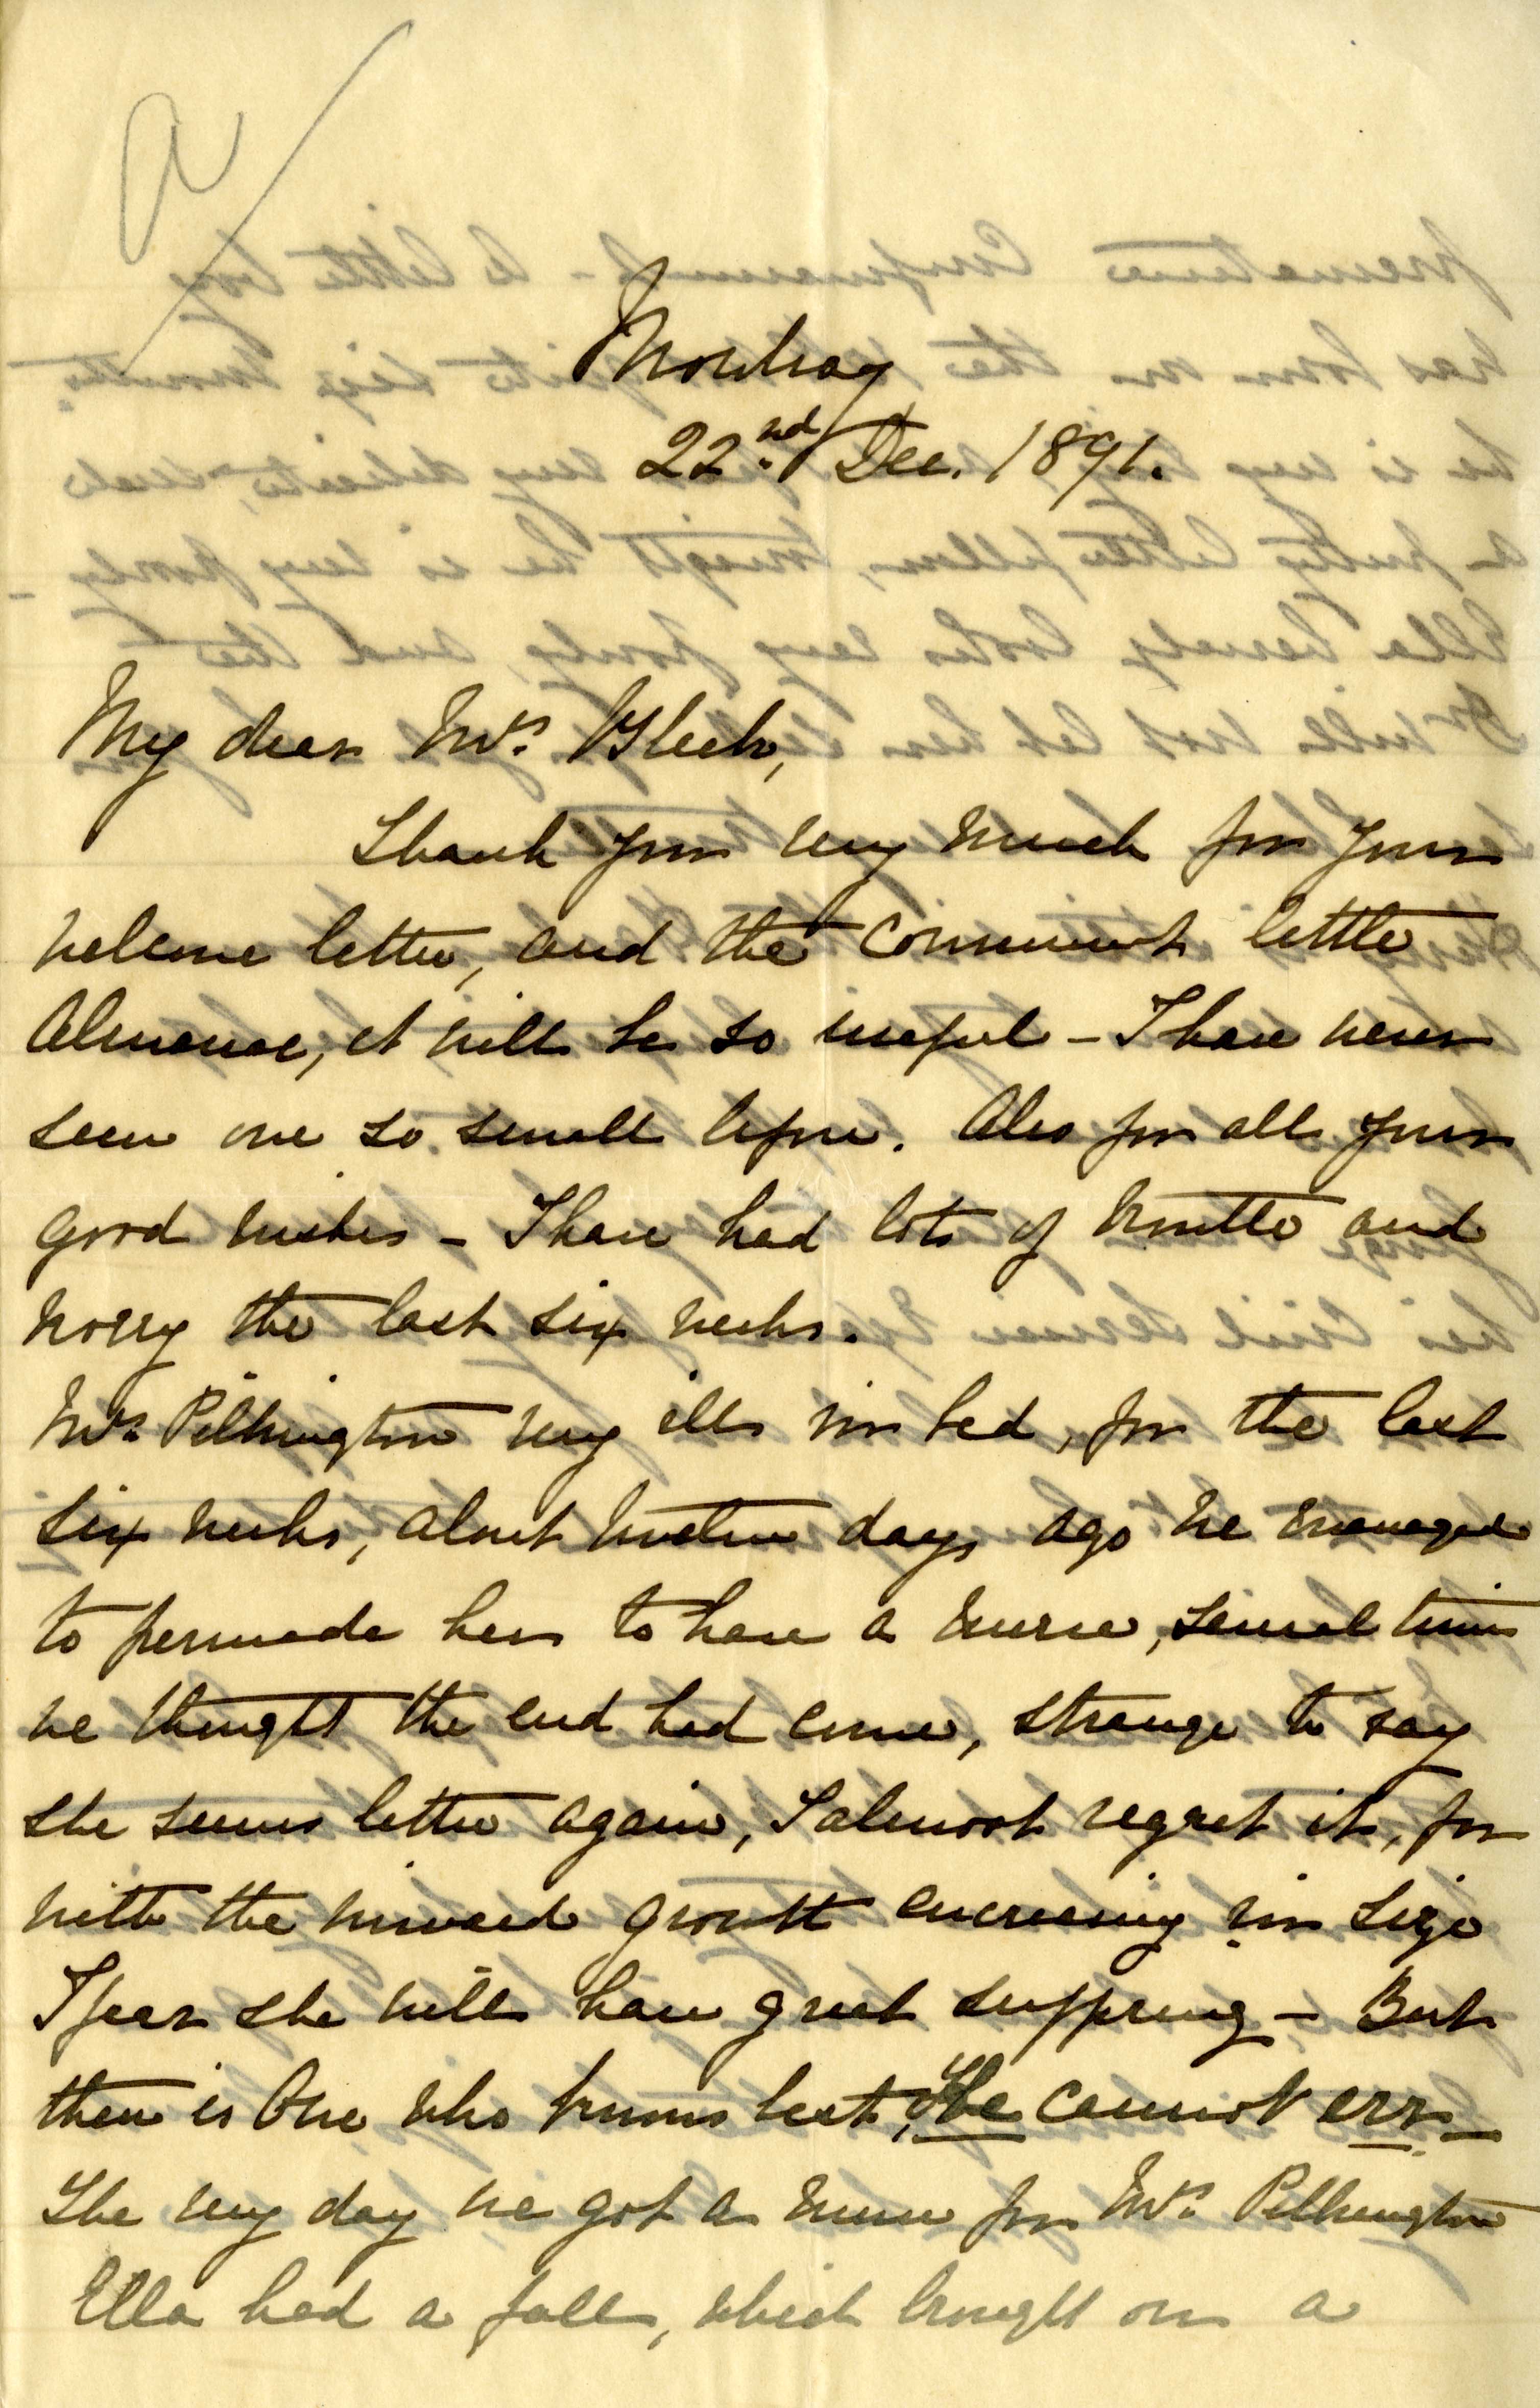 a
Mowbray
22.nd Dec. 1891.
My dear Mrs. Bleek,
Thank you very much for your
welcome letter, and the convenient little
Almanac, it will be so useful – I have never
seen one so small before. Also for all your
good wishes – I have had lots of trouble and
worry the last six weeks.
Mrs. Pilkington very ill in bed, for the last
six weeks, about twelve days ago we managed
to persuade her to have a nurse, several times
we thought the end had come, strange to say
she seems better again, I almost regret it, for
with the inward growth encreasing in size
I fear she will have great suffering – But
there is One who knows best, He cannot err.
The very day we got a nurse for Mrs. Pilkington
Ella had a fall, which brought on a